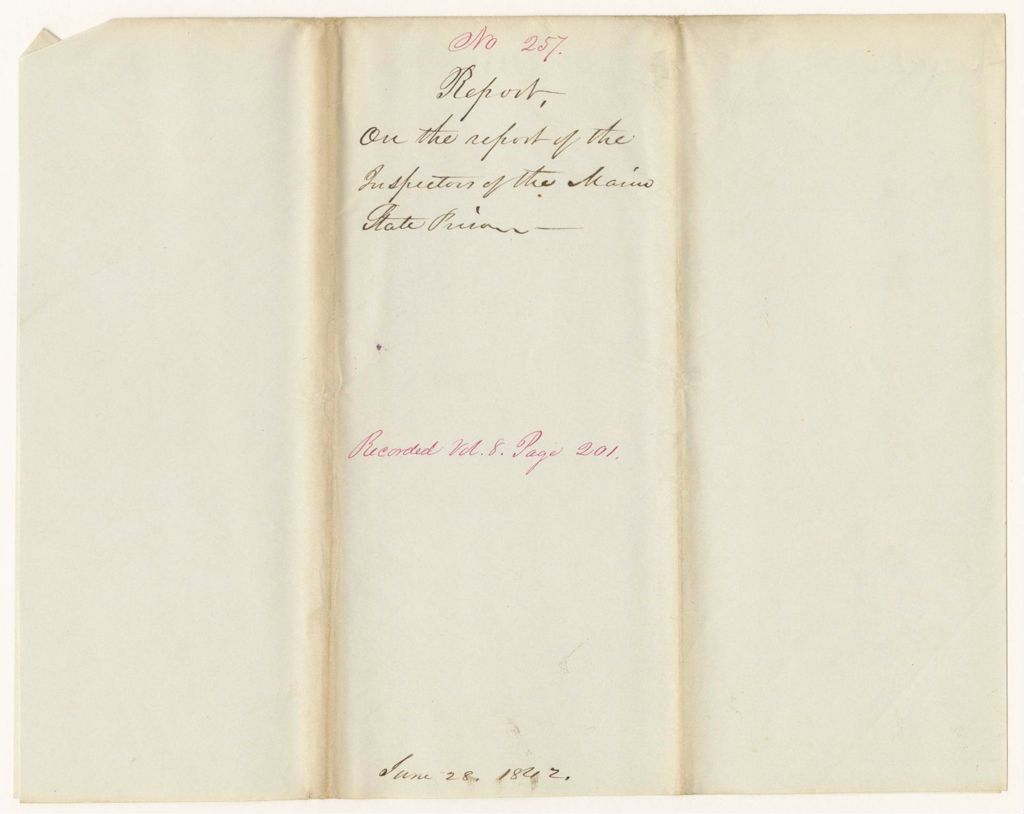 No 257.
Report,
On the report of the
Inspectors of the Maine
State Prison —
Recorded Vol. 8. Page 201.
June 28. 1842.